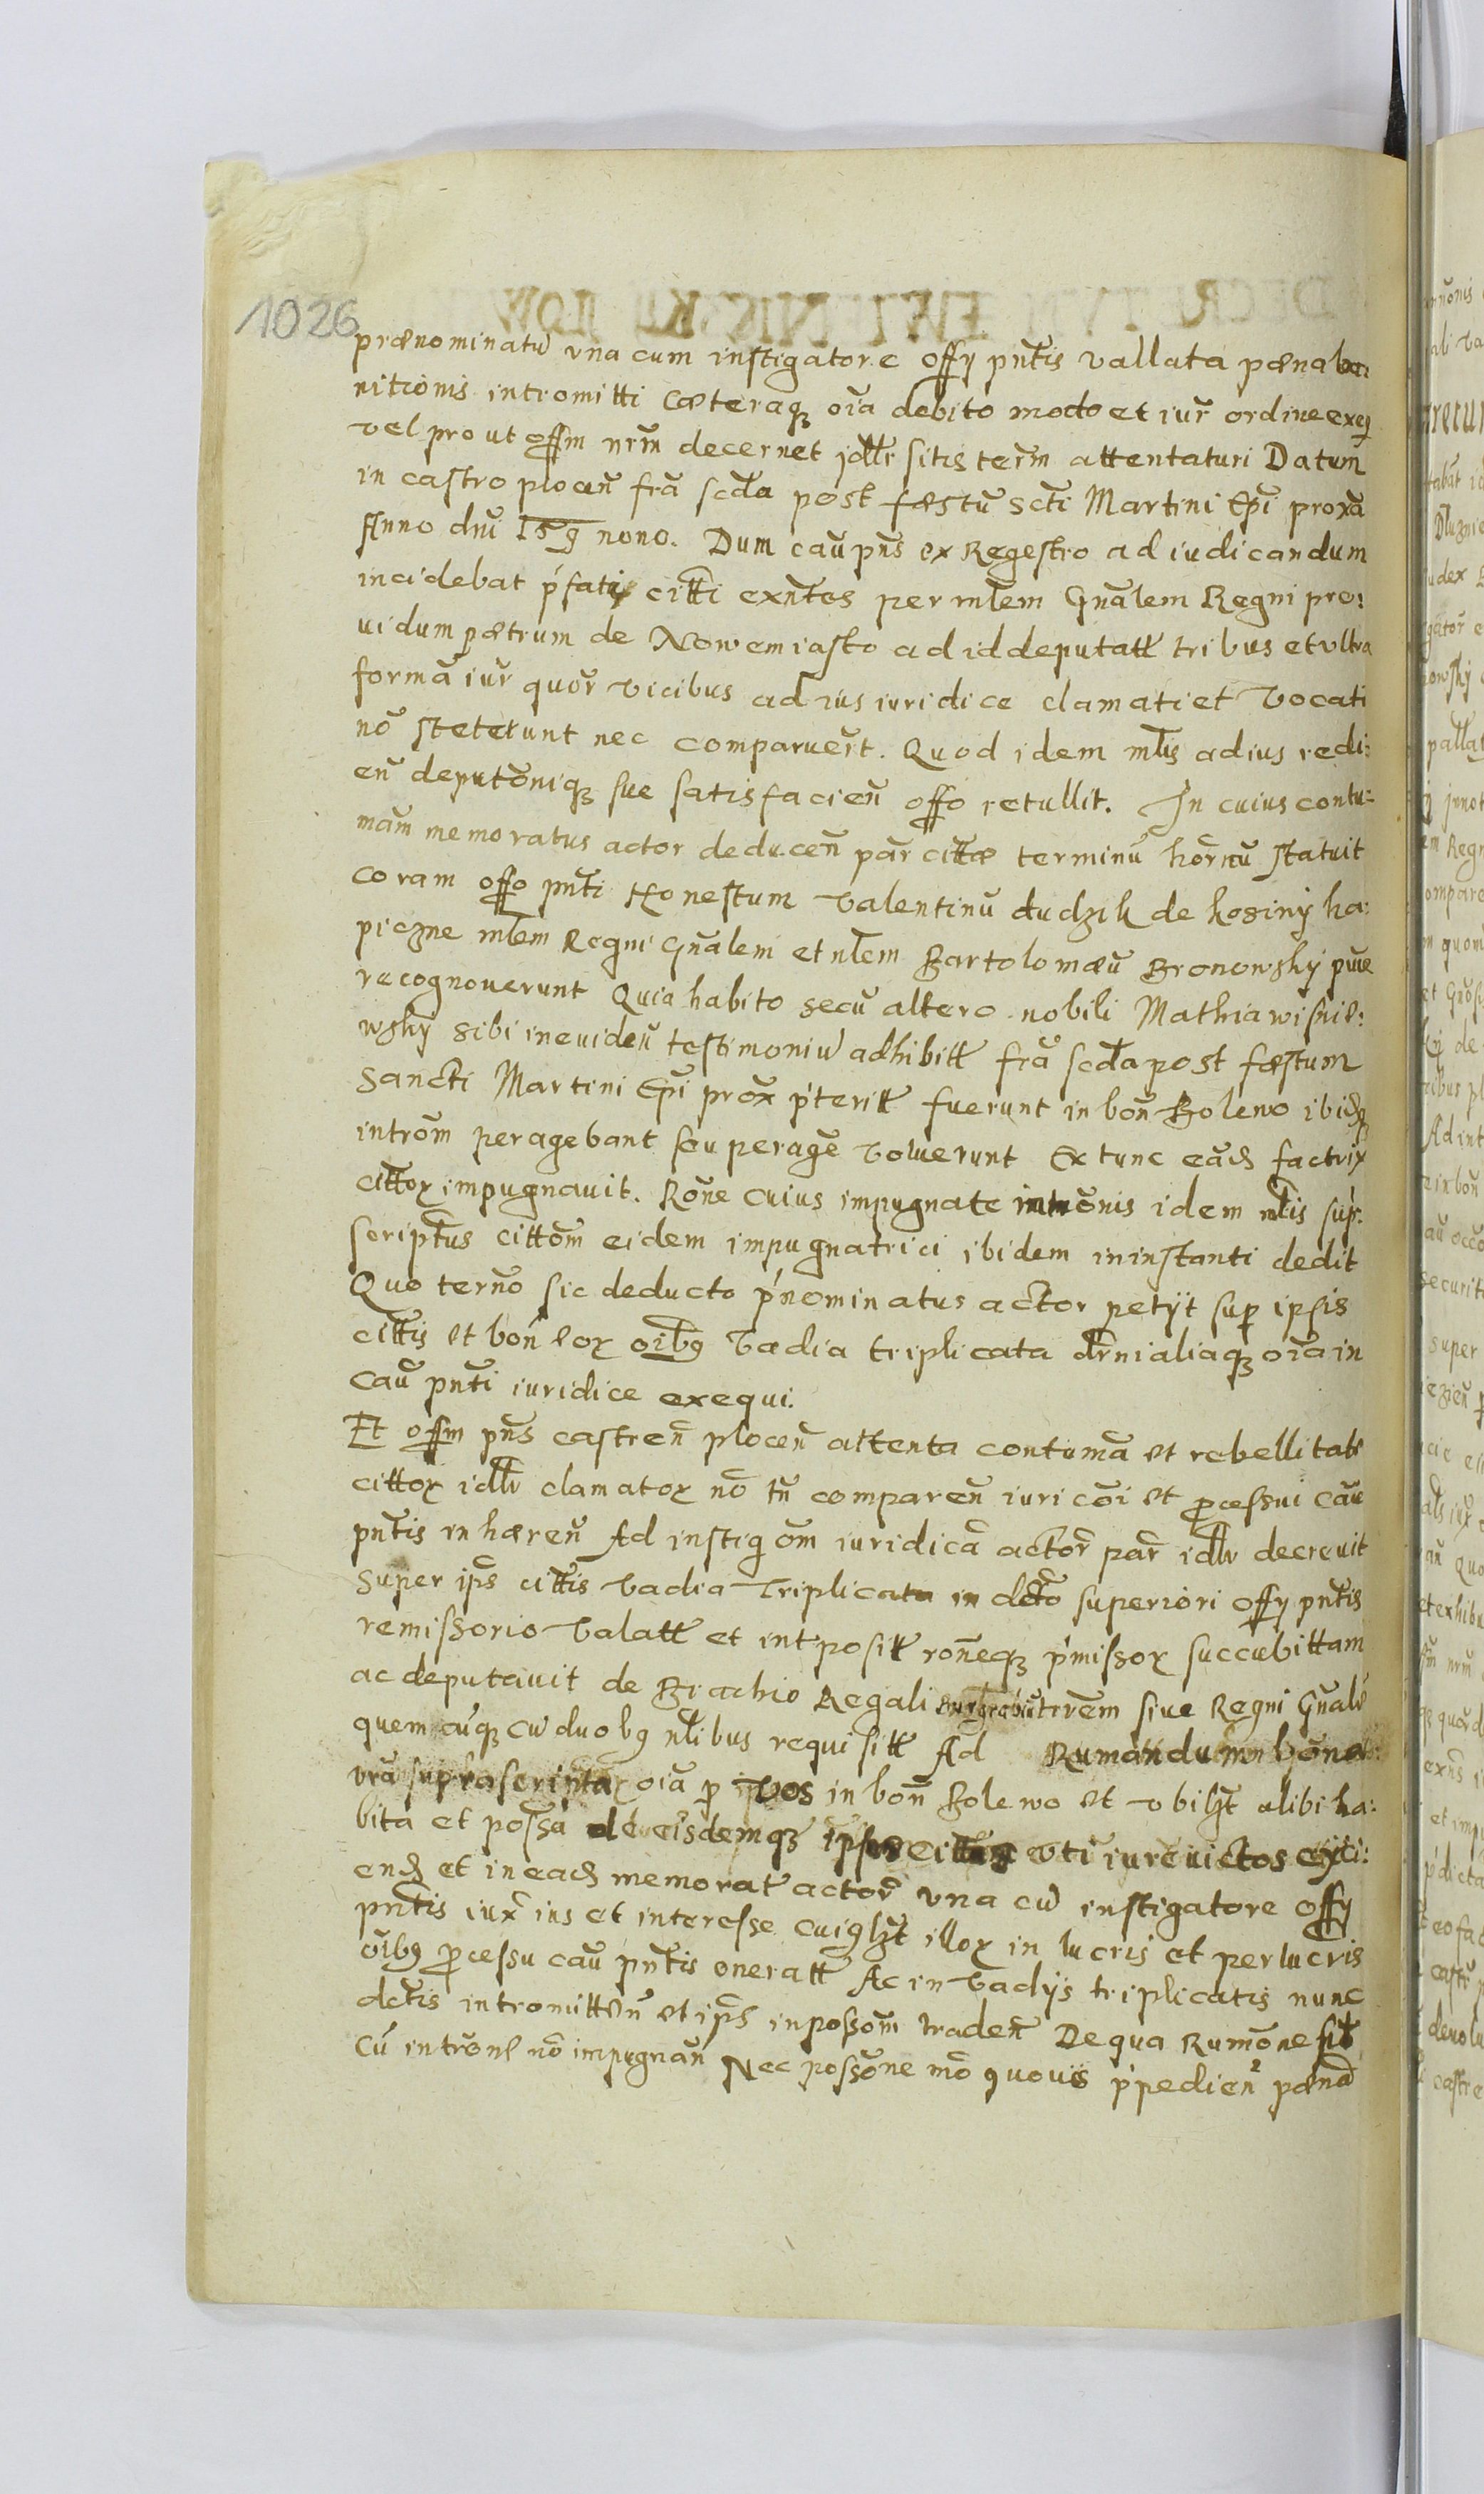 1026
prænominatū vna cum instigatore offy pn̄tis vallata pæna ban
nitionis intromitti Cæteraq₃ oīa debito modo et iur̄ ordine exeq̄
vel prout offm nr̄m decernet jdlr̄ sitis ter̄m attentaturi Datum
in castro plocen̄ fr̄a scd̄a post fæstū scti Martini Ep̄i prox̄a
Anno dn̄i 159 nono. Dum cau̅ pn̄s ex Regestro ad iudicandum
incidebat ṕfati citti exn̄tes per mlem Gn̄alem Regni pro:
uidum pætrum de Nowemiasto ad id deputatt̄ tribus et vltra
formā iur̄ quor̄ vicibus ad ius iuridice clamati et vocati
nō steterunt nec comparuer̄t. Quod idem mlis ad ius redi:
en̄ deputōniq₃ sue satisfacien̄ offo retullit. In cuius contu=
mām memoratus actor deducen̄ par̄ cittæ terminū hor̄nū statuit
coram offo pn̄ti Honestum Valentinū dudzik de kosiny ka:
piczne mlem Regni Gn̄alem et nlem Bartolomæū Bronowsky
recognouerunt Quia habito secū altero nobili Mathia wisnie:
wsky sibi in euiden̄ testimoniū adhibitt̄ fr̄a scd̄a post fæstum
Sancti Martini Ep̄i prox̄ ṕteritt̄ fuerunt in bon̄ Bolewo ibid₃
introm̄ peragebant seu perager̄e voluerunt Ex tunc ead₃ factrix
cittoꝝ impugnauit. Rōne cuius impugnate intrōnis idem mlis sup̄:
scriptus cittōm eidem impugnatrici ibidem in instanti dedit
Quo ter̄no sic deducto ṕnominatus actor petÿt sup̄ ipsis
cittis et bon̄ eoꝝ oīb₉ vadia triplicata dcr̄ni aliaq₃ oīa in
cau̅ pn̄ti iuridice exequi.
Et offm pn̄s castren̄ plocen̄ attenta contumā et rebellitate
cittoꝝ idlr̄ clamatoꝝ nō tn̄ comparen̄ iuri cōi et p̄cessui cau̅
pn̄tis inhæren̄ Ad instigōm iuridicā actor̄ par̄ idlr̄ decreuit
super ips̄ cittis vadia Triplicata in dcto superiori offy pn̄tis
remissorio valatt̄ et intpositt̄ rōneq₃ ṕmissoꝝ succubittam
ac deputauit de Brachio Regali m̄trem siue Regni Gn̄ale
quemcūq₃ cū duob₉ nlibus requisitt̄ Ad Rumandum bona
supra scripta oīa p̄ vos in bon̄ Bolewo et vbilz̄t alibi ha:
bita et possa de eisdemq₃ ipsos cittos vti iure uictos eyci:
end₃ et in ead₃ memorat̄ actor̄ vna cū instigatore offy
pn̄tis iux̄ ius et interesse cui₉lz̄t illoꝝ in lucris et perlucris
oīb₉ p̄cessu cau̅ pn̄tis oneratt̄ Ac in vadÿs triplicatis nunc
dctis intromitten̄ et ips̄ in possōm traden̄ De qua Rumōne sit
cū intrōne nō impugnan̄ Nec possōne mō quouis ṕpedien̄ pænā